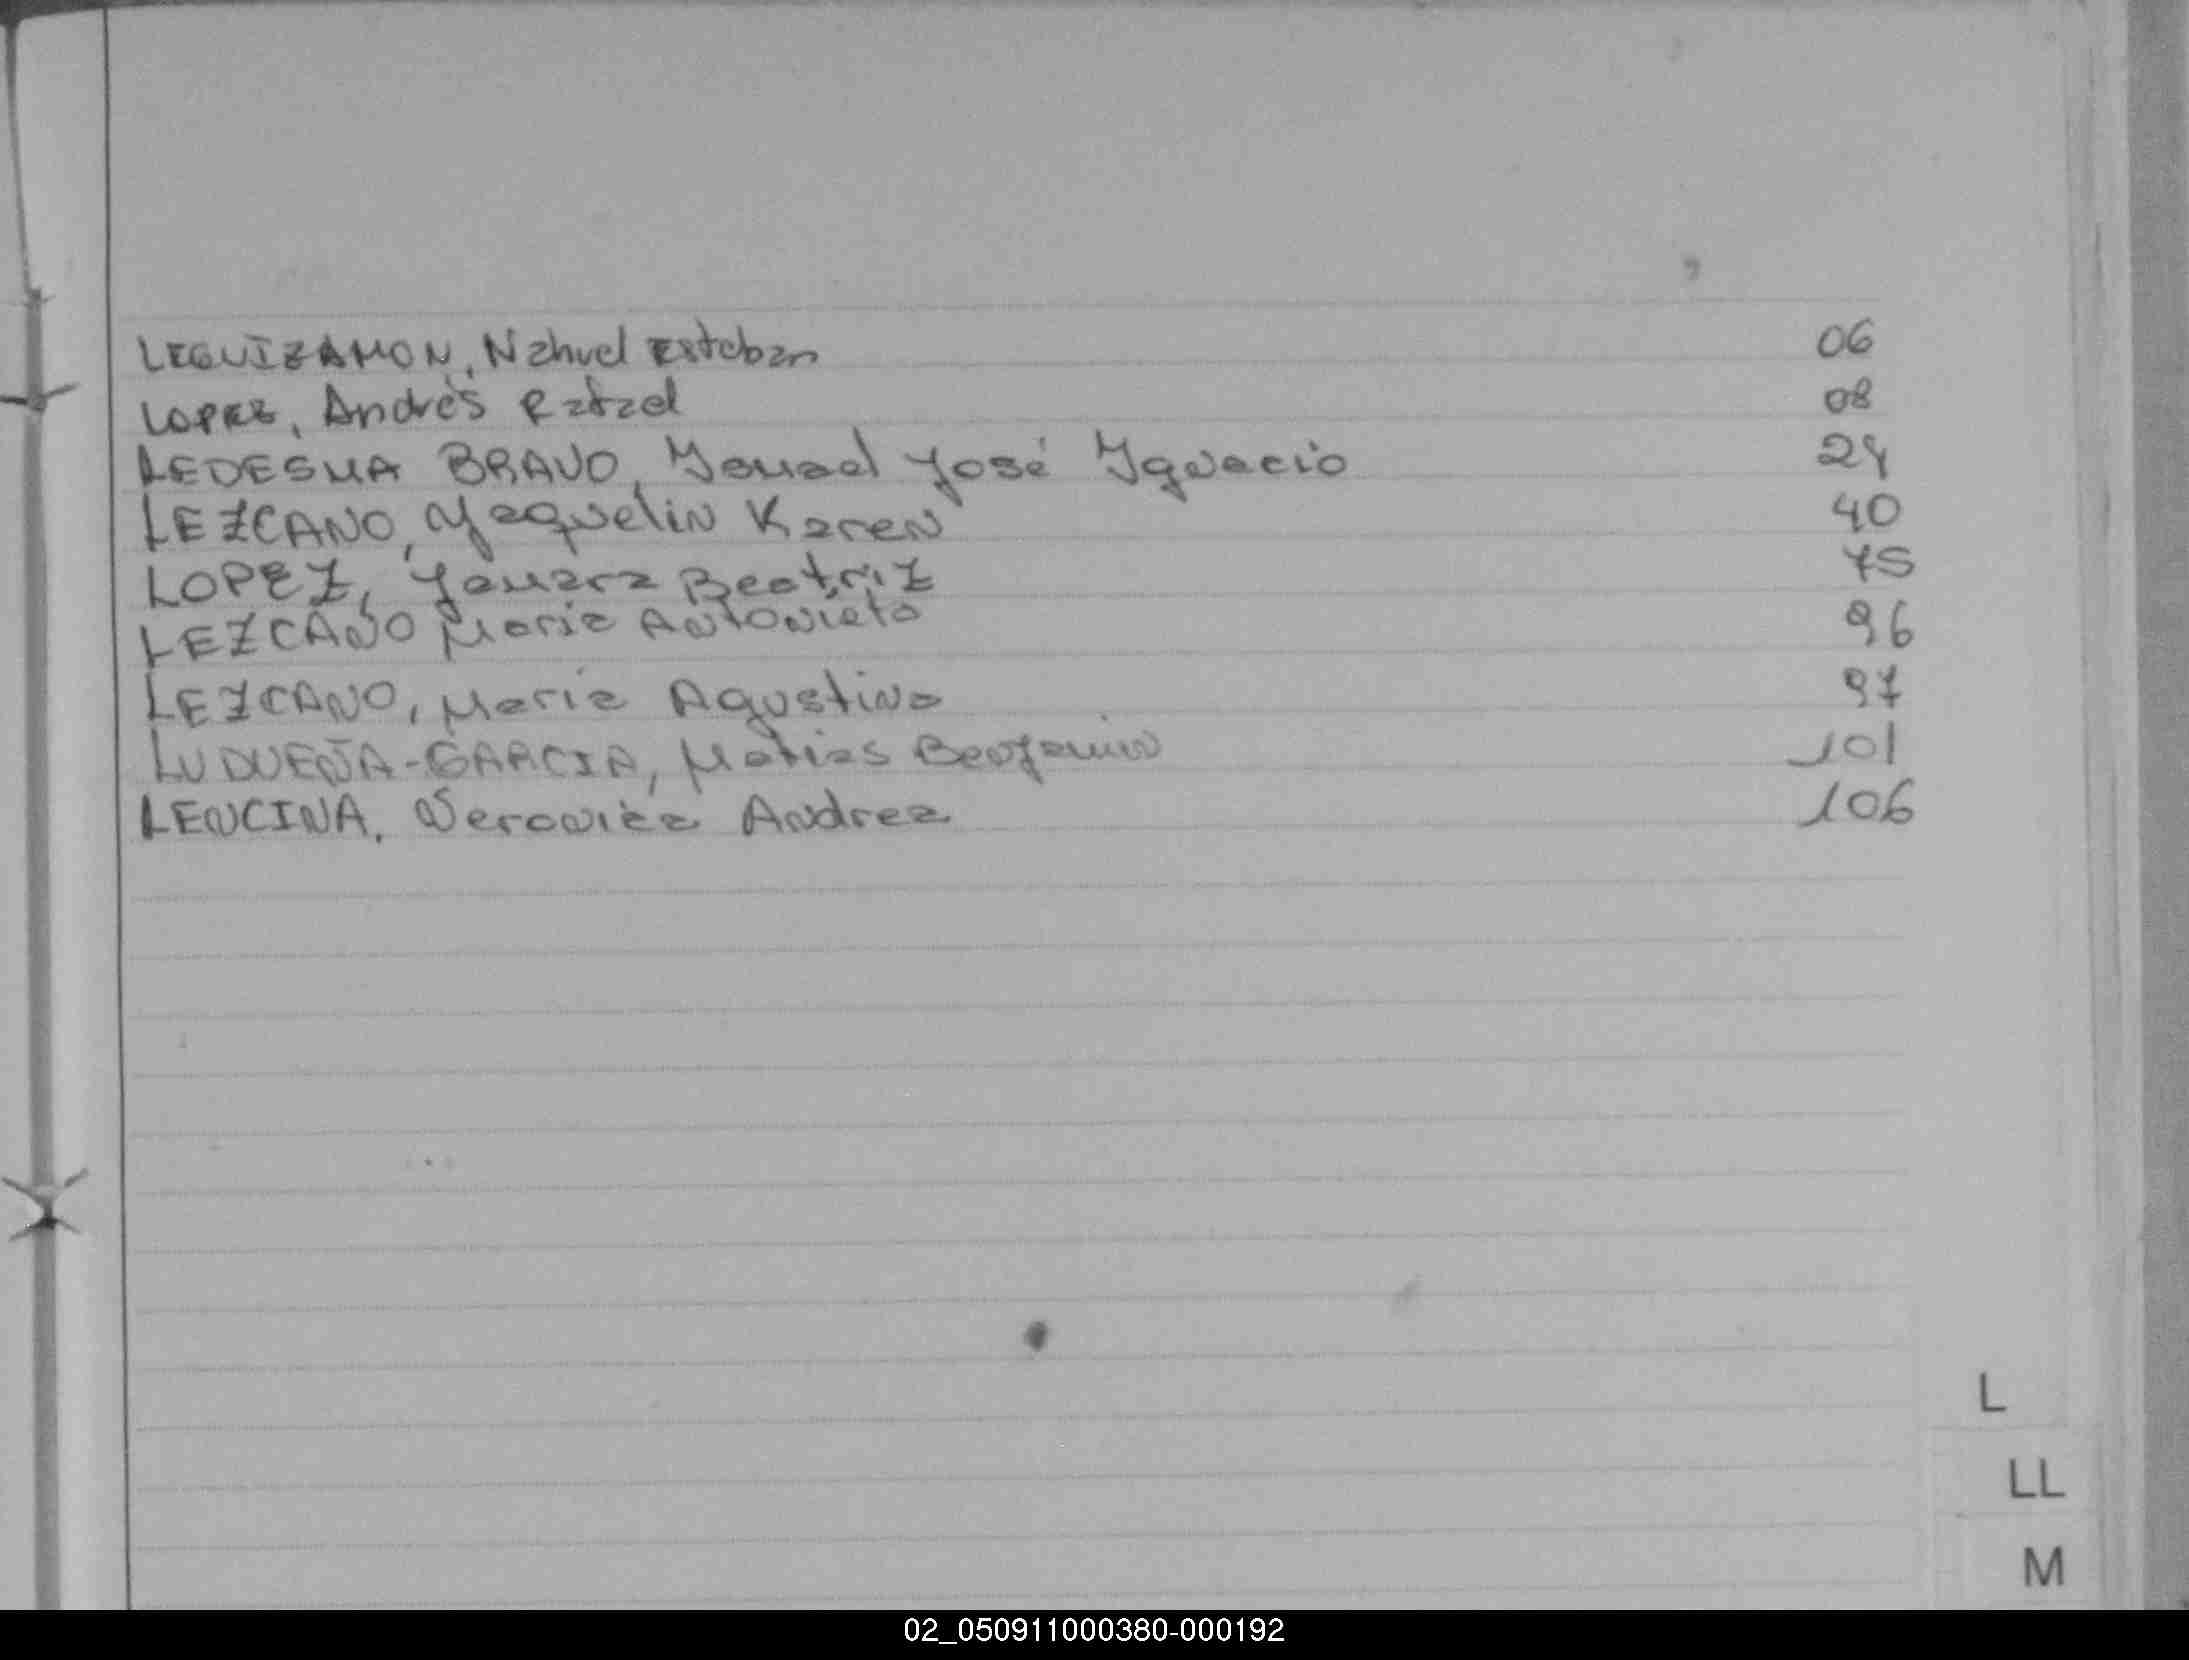 LEGUIZAMON, Nahuel Esteban 06
LOPEZ, Andrés Rafael 08
LEDESMA BRAVO, Ismael José Ignacio 24
LEZCANO, Yaquelin Karen 40
LOPEZ, Yamara Beatriz 75
LEZCANO María Antonieta 96
LEZCANO, María Agustina 97
LUDUEÑA-GARCIA, Matias Benjamin 101
LENCINA, Veronica Andrea 106
L
LL
M
02_050911000380-000192